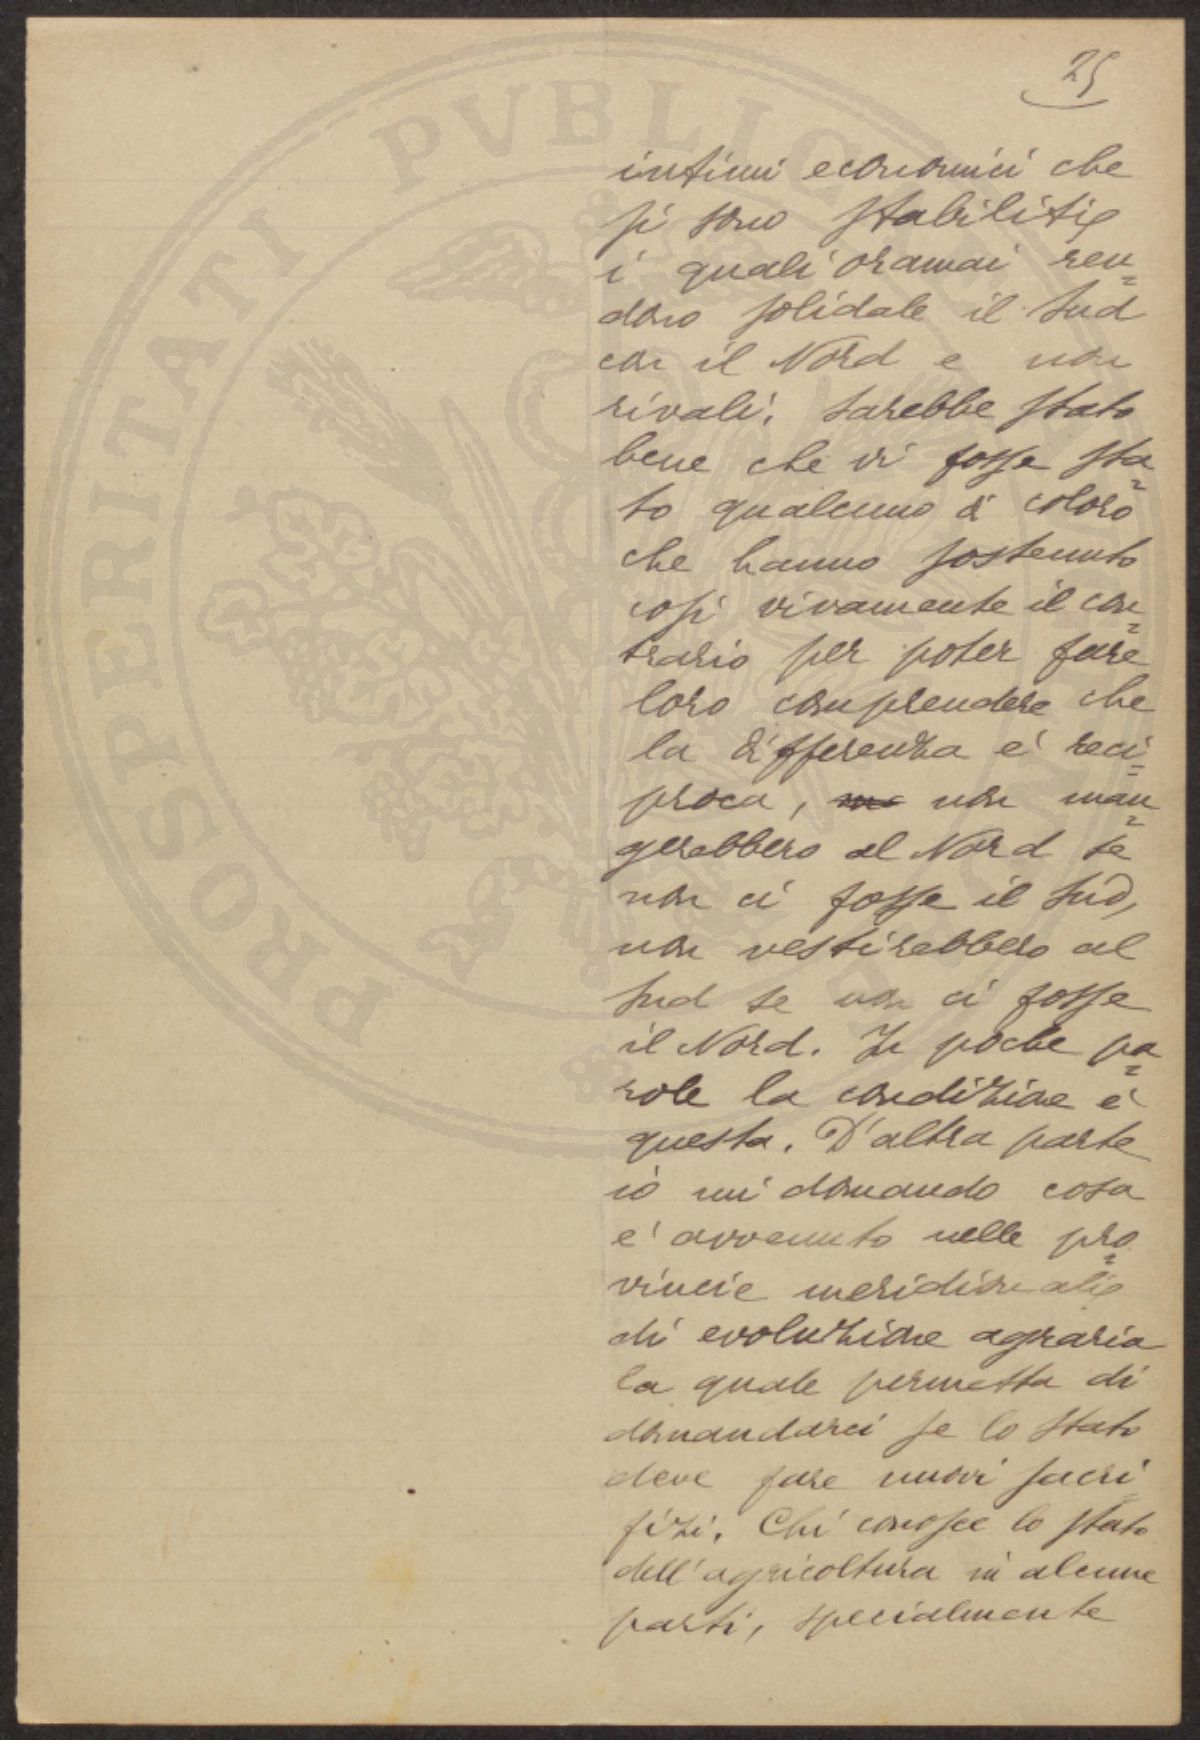 25
intimi economici che
si sono stabiliti e
i quali oramai ren=
dono solidale il Sud
con il Nord e non
rivali. Sarebbe stato
bene che vi fosse sta=
to qualcuno di coloro
che hanno sostenuto
così vivamente il con=
trario per poter fare
loro comprendere che
la differenza è reci=
proca, non man=
gerebbero al Nord se
non ci fosse il Sud,
non vestirebbero al
Sud se non ci fosse
il Nord. In poche pa=
role la condizione è
questa. D'altra parte
io mi domando cosa
è avvenuto nelle pro=
vincie meridionali e
di evoluzione agraria
la quale permetta di
domandarci se lo Stato
deve fare nuovi sacri=
fizi. Chi conosce lo stato
dell'agricoltura in alcune
parti, specialmente
PROSPERITATI PVBLIC